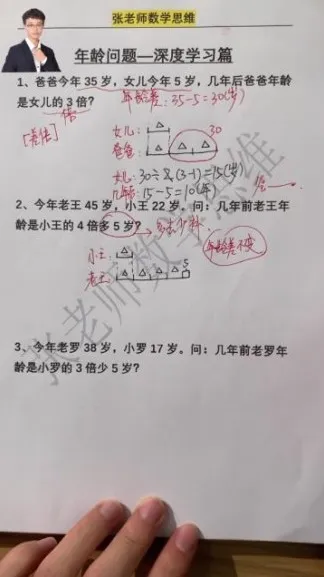 张老师数学思维
年龄问题—深度学习篇
1、爸爸今年 35 岁，女儿今年 5 岁，几年后爸爸年龄
是女儿的 3 倍？
年龄差：35-5=30(岁)
[差倍]
倍
女儿：
30
爸爸：
女儿：30÷(3-1)=15(岁)
几年后：15-5=10(年)
2、今年老王 45 岁，小王 22 岁。问：几年前老王年
龄是小王的 4 倍多 5 岁？
年龄差不变
小王：
5
老王：
3、今年老罗 38 岁，小罗 17 岁。问：几年前老罗年
龄是小罗的 3 倍少 5 岁？
张老师数学思维